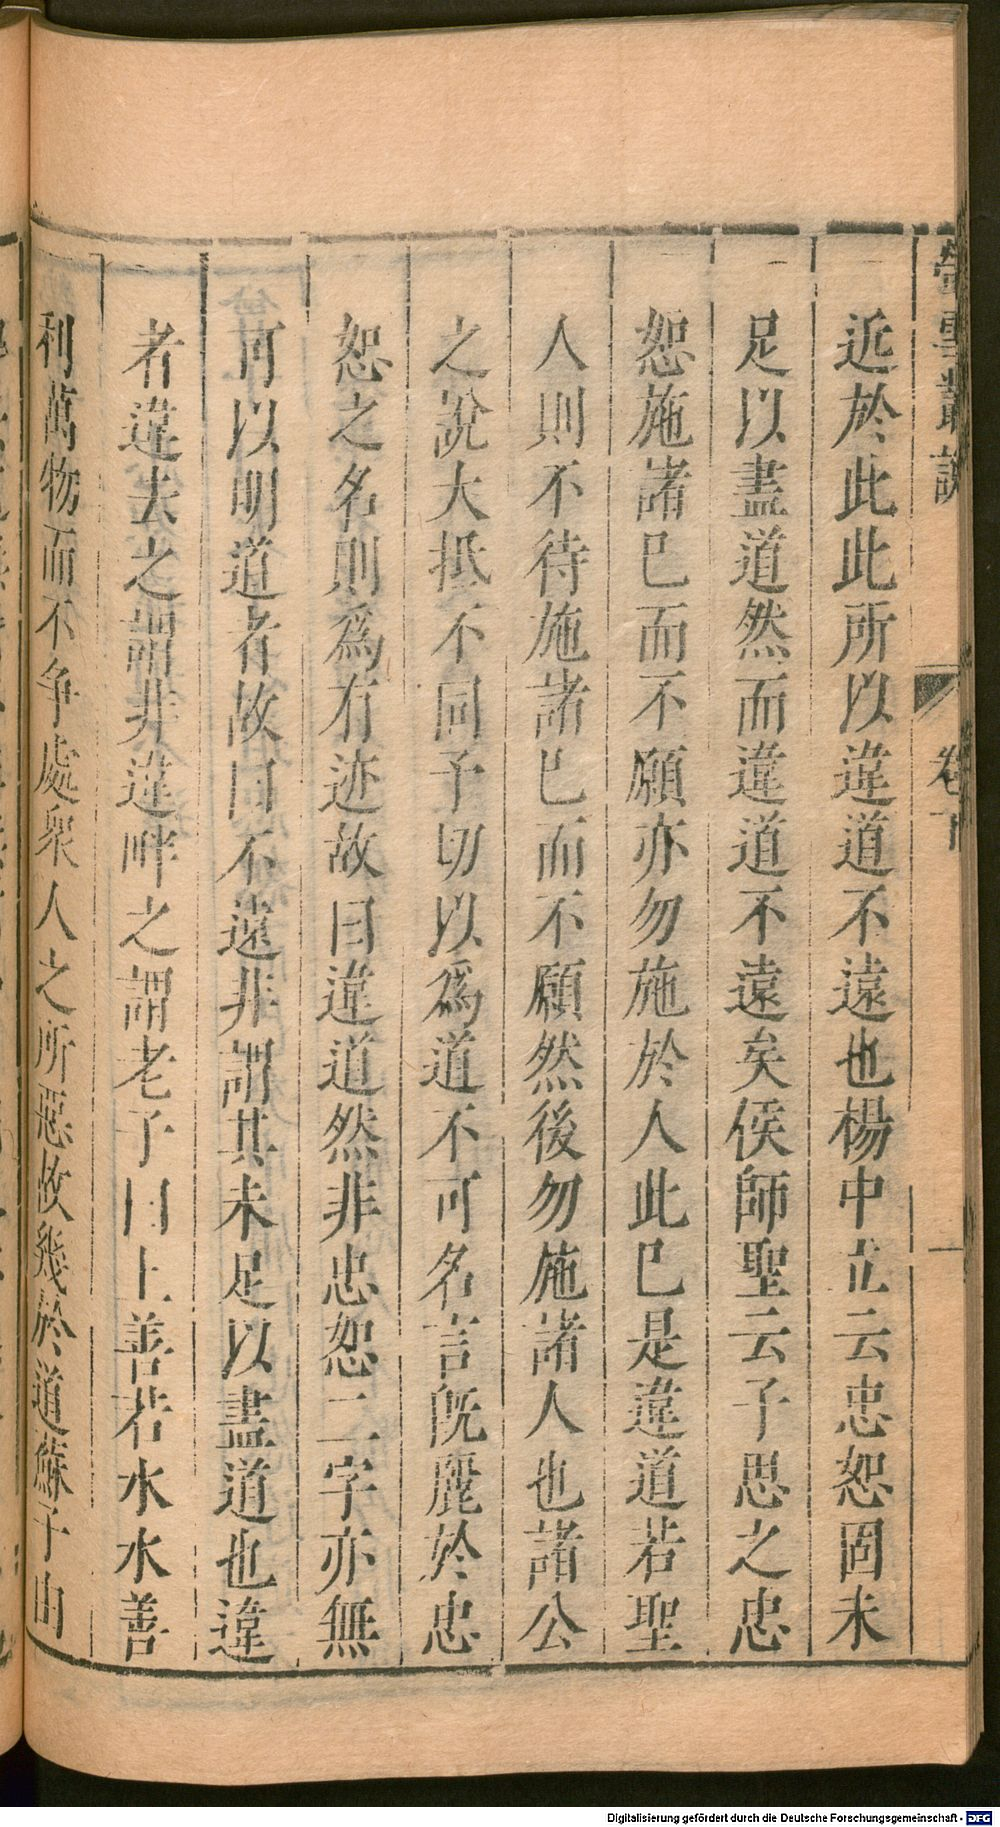 螢雪叢說
卷下
一
近於此此所以違道不遠也楊中立云忠恕固未
足以盡道然而違道不遠矣侯師聖云子思之忠
恕施諸巳而不願亦勿施於人此巳是違道若聖
人則不待施諸巳而不願然後勿施諸人也諸公
之說大抵不同予切以爲道不可名言旣麗於忠
恕之名則爲有迹故曰違道然非忠恕二字亦無
可以明道者故曰不遠非謂其未足以盡道也違
者違去之謂非違畔之謂老子曰上善若水水善
利萬物而不争處衆人之所惡故幾於道蘇子由
Digitalisierung gefördert durch die Deutsche Forschungsgemeinschaft - DFG